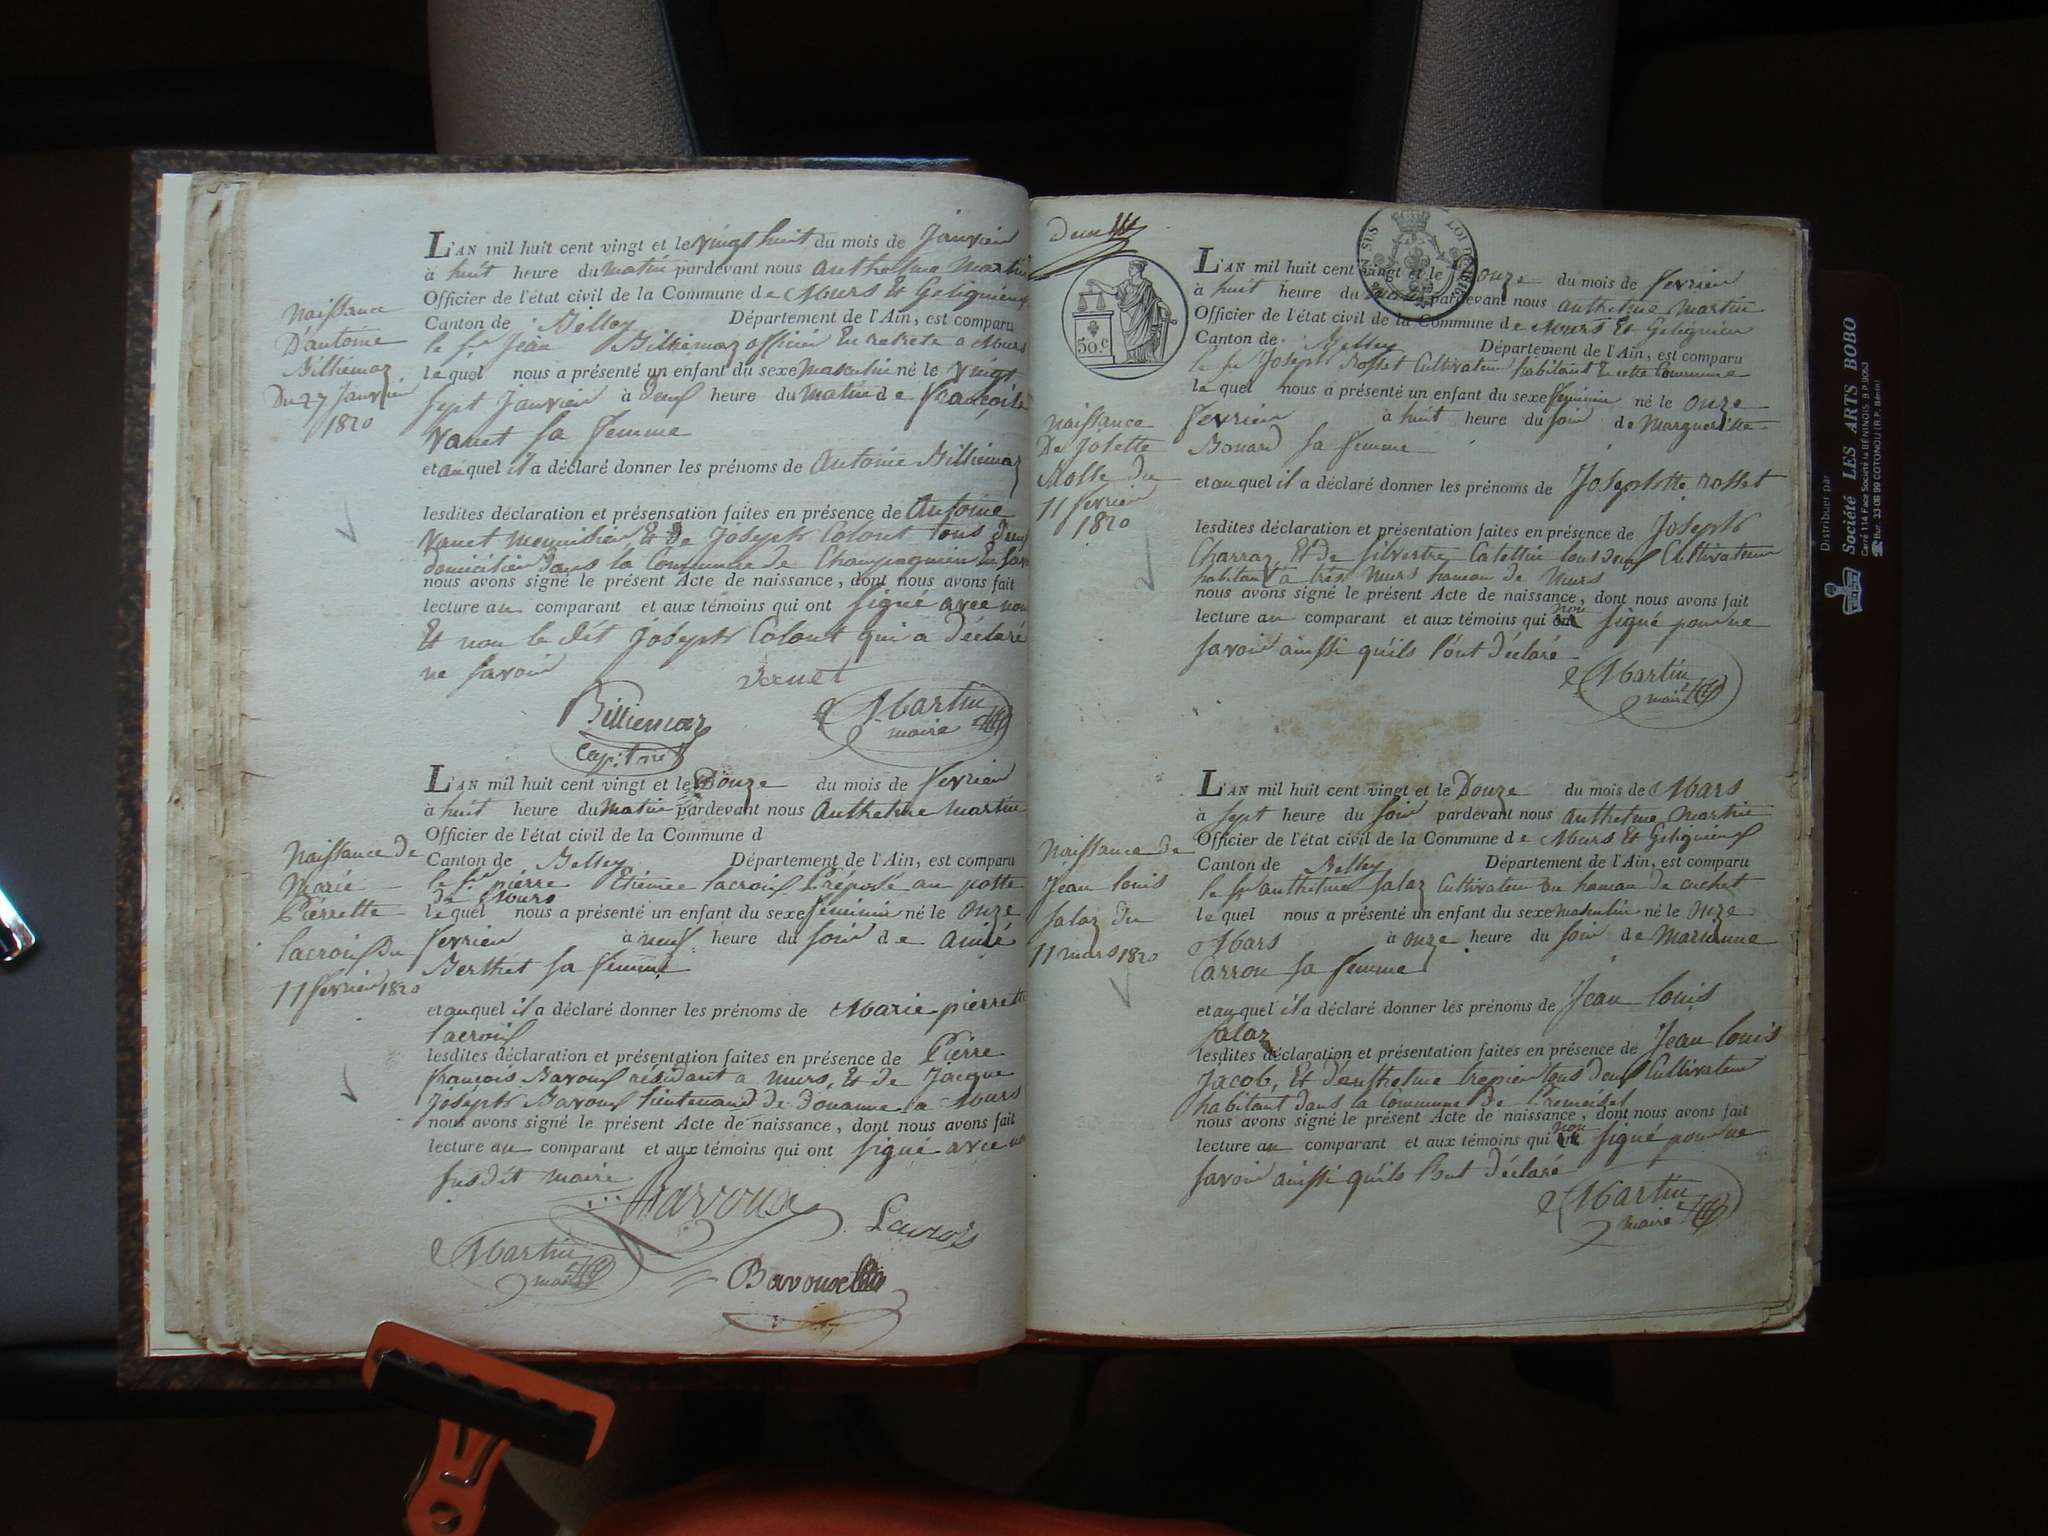 L'AN mil huit cent vingt et le vingt huit du mois de Janvier
à huit heure du matin pardevant nous anthelme Martin
Officier de l'état civil de la Commune de Murs Et Gelignieux
Canton de Belley Département de l'Ain, est comparu
le Sr Jean Billiemaz officier En retrete a Murs
lequel nous a présenté un enfant du sexe masculin né le vingt
sept Janvier à Deux heure du matin de Françoise
Vanet sa femme
et auquel il a déclaré donner les prénoms de Antoine Billiemaz
lesdites déclaration et présensation faites en présence de Antoine
Vanet Et de Joseph Colout tous Deux
dans la Commune de Champagnieu En
nous avons signé le présent Acte de naissance, dont nous avons fait
lecture au comparant et aux témoins qui ont signé avec nous
Et non le dit Joseph Colout qui a déclaré
ne savoir
vanet
Billiemaz
Martin
maire
Naissance
D'antoine
Billiemaz
Du 27 Janvier
1820
L'AN mil huit cent vingt et le Douze du mois de fevrier
à huit heure du matin pardevant nous Anthelme Martin
Officier de l'état civil de la Commune d
Canton de Belley Département de l'Ain, est comparu
le Sr pierre Etienne lacroix Préposé au potte
de Murs
lequel nous a présenté un enfant du sexe feminin né le onze
fevrier à neuf heure du soir de
Berthet sa femme
et auquel il a déclaré donner les prénoms de Marie pierrette
lacroix
lesdites déclaration et présentation faites en présence de Pierre
françois Bavoux résidant a murs, Et de Jacque
Joseph Bavoux lieutenand de Douanne a Murs
nous avons signé le présent Acte de naissance, dont nous avons fait
lecture au comparant et aux témoins qui ont signé avec nous
susdit maire
Bavoux
Lacroix
Martin
maire
Bavoux
Naissance de
Marie
Pierrette
lacroix Du
11 fevrier 1820
50.c
L'AN mil huit cent vingt et le Douze du mois de fevrier
à huit heure du pardevant nous anthelme Martin
Officier de l'état civil de la Commune de Murs Et Gelignieu
Canton de Belley Département de l'Ain, est comparu
le Sr Joseph rosset Cultivateur habitant En cette Commune
lequel nous a présenté un enfant du sexe feminin né le onze
fevrier à huit heure du soir de Marguerite
Bonard sa femme
et auquel il a déclaré donner les prénoms de Josephtte rosset
lesdites déclaration et présentation faites en présence de Joseph
Charraz Et de silvestre Catettin tous deux Cultivateur
habitant à très Murs hameau de Murs
nous avons signé le présent Acte de naissance, dont nous avons fait
non
lecture au comparant et aux témoins qui ont signé pour ne
savoir ainssi qu'ils l'ont déclaré
Martin
maire
Naissance
De Josette
du
11 fevrier
1820
L'AN mil huit cent vingt et le Douze du mois de Mars
à sept heure du soir pardevant nous anthelme Martin
Officier de l'état civil de la Commune de Murs Et Gelignieux
Canton de Belley Département de l'Ain, est comparu
le Sr anthelme salaz Cultivateur au hameau de cuchet
lequel nous a présenté un enfant du sexe masculin né le onze
Mars à onze heure du soir de Marianne
Carron sa femme
et auquel il a déclaré donner les prénoms de Jean louis
salaz
lesdites déclaration et présentation faites en présence de Jean louis
Jacob, Et d'anthelme trepier tous deux Cultivateur
habitant dans la Commune De Premeisel
nous avons signé le présent Acte de naissance, dont nous avons fait
non
lecture au comparant et aux témoins qui ont signé pour ne
savoir ainssi qu'ils l'ont déclaré
Martin
maire
Naissance de
Jean louis
salaz Du
11 mars 1820
Distribuer par
Société LES ARTS BOBO